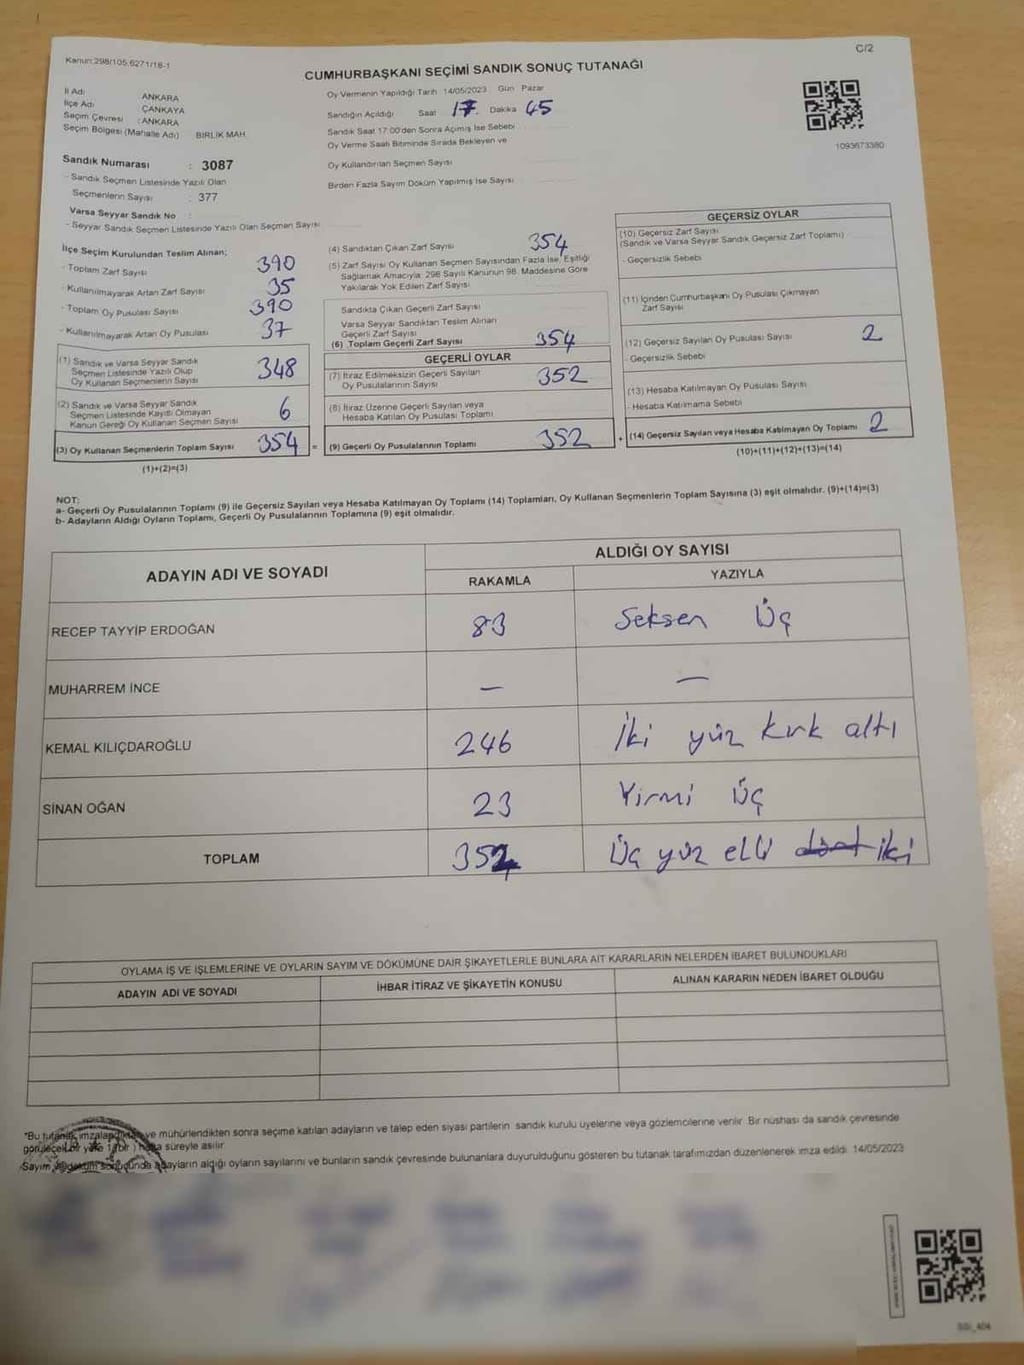 Kanun:298/105,6271/18-1
C/2
CUMHURBAŞKANI SEÇİMİ SANDIK SONUÇ TUTANAĞI
İl Adı ANKARA
İlçe Adı ÇANKAYA
Seçim Çevresi : ANKARA
Seçim Bölgesi (Mahalle Adı) BİRLİK MAH.
Sandık Numarası : 3087
- Sandık Seçmen Listesinde Yazılı Olan
Seçmenlerin Sayısı : 377
Varsa Seyyar Sandık No :
- Seyyar Sandık Seçmen Listesinde Yazılı Olan Seçmen Sayısı
Oy Vermenin Yapıldığı Tarih 14/05/2023 Gün Pazar
Sandığın Açıldığı Saat 17. Dakika 45
Sandık Saat 17:00'den Sonra Açılmış İse Sebebi
Oy Verme Saati Bitiminde Sırada Bekleyen ve
Oy Kullandırılan Seçmen Sayısı
Birden Fazla Sayım Döküm Yapılmış İse Sayısı
1093673380
İlçe Seçim Kurulundan Teslim Alınan;
- Toplam Zarf Sayısı 390
- Kullanılmayarak Artan Zarf Sayısı 35
- Toplam Oy Pusulası Sayısı 390
- Kullanılmayarak Artan Oy Pusulası 37
(1) Sandık ve Varsa Seyyar Sandık
Seçmen Listesinde Yazılı Olup
Oy Kullanan Seçmenlerin Sayısı 348
(2) Sandık ve Varsa Seyyar Sandık
Seçmen Listesinde Kayıtlı Olmayan
Kanun Gereği Oy Kullanan Seçmen Sayısı 6
(3) Oy Kullanan Seçmenlerin Toplam Sayısı 354 =
(1)+(2)=(3)
(4) Sandıktan Çıkan Zarf Sayısı 354
(5) Zarf Sayısı Oy Kullanan Seçmen Sayısından Fazla İse, Eşitliği
Sağlamak Amacıyla, 298 Sayılı Kanunun 98. Maddesine Göre
Yakılarak Yok Edilen Zarf Sayısı
Sandıkta Çıkan Geçerli Zarf Sayısı
Varsa Seyyar Sandıktan Teslim Alınan
Geçerli Zarf Sayısı
(6) Toplam Geçerli Zarf Sayısı 354
GEÇERLİ OYLAR
(7) İtiraz Edilmeksizin Geçerli Sayılan
Oy Pusulalarının Sayısı 352
(8) İtiraz Üzerine Geçerli Sayılan veya
Hesaba Katılan Oy Pusulası Toplamı
(9) Geçerli Oy Pusulalarının Toplamı 352 +
GEÇERSİZ OYLAR
(10) Geçersiz Zarf Sayısı
(Sandık ve Varsa Seyyar Sandık Geçersiz Zarf Toplamı)
- Geçersizlik Sebebi
(11) İçinden Cumhurbaşkanı Oy Pusulası Çıkmayan
Zarf Sayısı
(12) Geçersiz Sayılan Oy Pusulası Sayısı 2
- Geçersizlik Sebebi
(13) Hesaba Katılmayan Oy Pusulası Sayısı
- Hesaba Katılmama Sebebi
(14) Geçersiz Sayılan veya Hesaba Katılmayan Oy Toplamı 2
(10)+(11)+(12)+(13)=(14)
NOT:
a- Geçerli Oy Pusulalarının Toplamı (9) ile Geçersiz Sayılan veya Hesaba Katılmayan Oy Toplamı (14) Toplamları, Oy Kullanan Seçmenlerin Toplam Sayısına (3) eşit olmalıdır. (9)+(14)=(3)
b- Adayların Aldığı Oyların Toplamı, Geçerli Oy Pusulalarının Toplamına (9) eşit olmalıdır.
ADAYIN ADI VE SOYADI
ALDIĞI OY SAYISI
RAKAMLA YAZIYLA
RECEP TAYYİP ERDOĞAN 83 Seksen Üç
MUHARREM İNCE — —
KEMAL KILIÇDAROĞLU 246 İki yüz kırk altı
SİNAN OĞAN 23 Yirmi Üç
TOPLAM 352 Üç yüz elli dört iki
OYLAMA İŞ VE İŞLEMLERİNE VE OYLARIN SAYIM VE DÖKÜMÜNE DAİR ŞİKAYETLERLE BUNLARA AİT KARARLARIN NELERDEN İBARET BULUNDUKLARI
ADAYIN ADI VE SOYADI İHBAR İTİRAZ VE ŞİKAYETİN KONUSU ALINAN KARARIN NEDEN İBARET OLDUĞU
*Bu tutanak imzalandıktan ve mühürlendikten sonra seçime katılan adayların ve talep eden siyasi partilerin sandık kurulu üyelerine veya gözlemcilerine verilir. Bir nüshası da sandık çevresinde
görülecek bir yere 1 (bir) hafta süreyle asılır.
Sayım, döküm sonucunda adayların aldığı oyların sayılarını ve bunların sandık çevresinde bulunanlara duyurulduğunu gösteren bu tutanak tarafımızdan düzenlenerek imza edildi. 14/05/2023